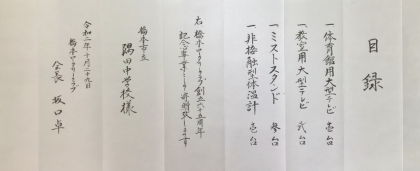 目録
一、体育館用大型テレビ 壱台
一、教室用大型テレビ 弐台
一、ミストスタンド 参台
一、非接触型体温計 壱台
右 橋本ロータリークラブ創立六十五周年
記念事業として寄贈致します
橋本市立
隅田中学校様
令和二年十月二十九日
橋本ロータリークラブ
会長 坂口 卓